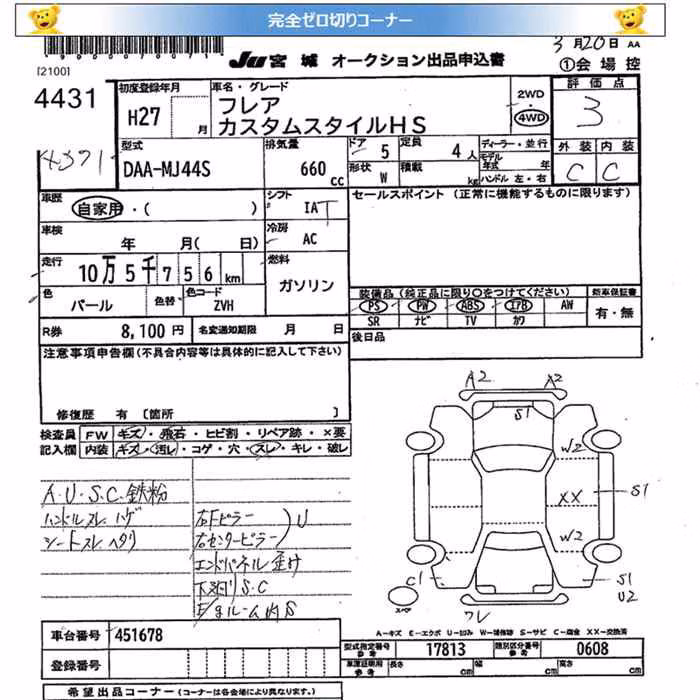 完全ゼロ切りコーナー
[2100]
JU 宮城 オークション出品申込書
3月20日 AA
①会場控
4431
初度登録年月
H27 月
車名・グレード
フレア
カスタムスタイルHS
2WD
4WD
評価点
3
外装 内装
C C
型式
DAA-MJ44S
排気量
660 cc
ドア 5
形状 W
定員 4人
積載 kg
ディーラー・並行
モデル年式 年
ハンドル 左・右
車歴
自家用・( )
シフト
IAT
セールスポイント (正常に機能するものに限ります)
車検
年 月( 日)
冷房
AC
走行
10万5千756km
燃料
ガソリン
色
パール
色替
色コード
ZVH
装備品 (純正品に限り○をつけてください)
新車保証書
PS PW ABS エアB AW
SR ナビ TV カワ
有・無
R券 8,100円
名変通知期限 月 日
後日品
注意事項申告欄(不具合内容等は具体的に記入して下さい)
修復歴 有 [箇所 ]
検査員 FW キズ・飛石・ヒビ割・リペア跡・×要
記入欄 内装 キズ・汚レ・コゲ・穴・スレ・キレ・破レ
A・U・S・C・鉄粉
ハンドルスレ、ハゲ
シートスレ、ヘタリ
右Fピラー
右センターピラー
U
エンドパネル歪け
下廻りS・C
A2 A2
S1
W2
XX S1
W2
C1
S1
U2
スペア
ワレ
A-キズ E-エクボ U-凹み W-補修跡 S-サビ C-腐食 XX-交換済
車台番号 451678
登録番号
型式指定番号 参考 17813
類別区分番号 参考 0608
車庫証明用 参考 長さ cm 幅 cm 高さ cm
希望出品コーナー (コーナーは各会場により異なります。)